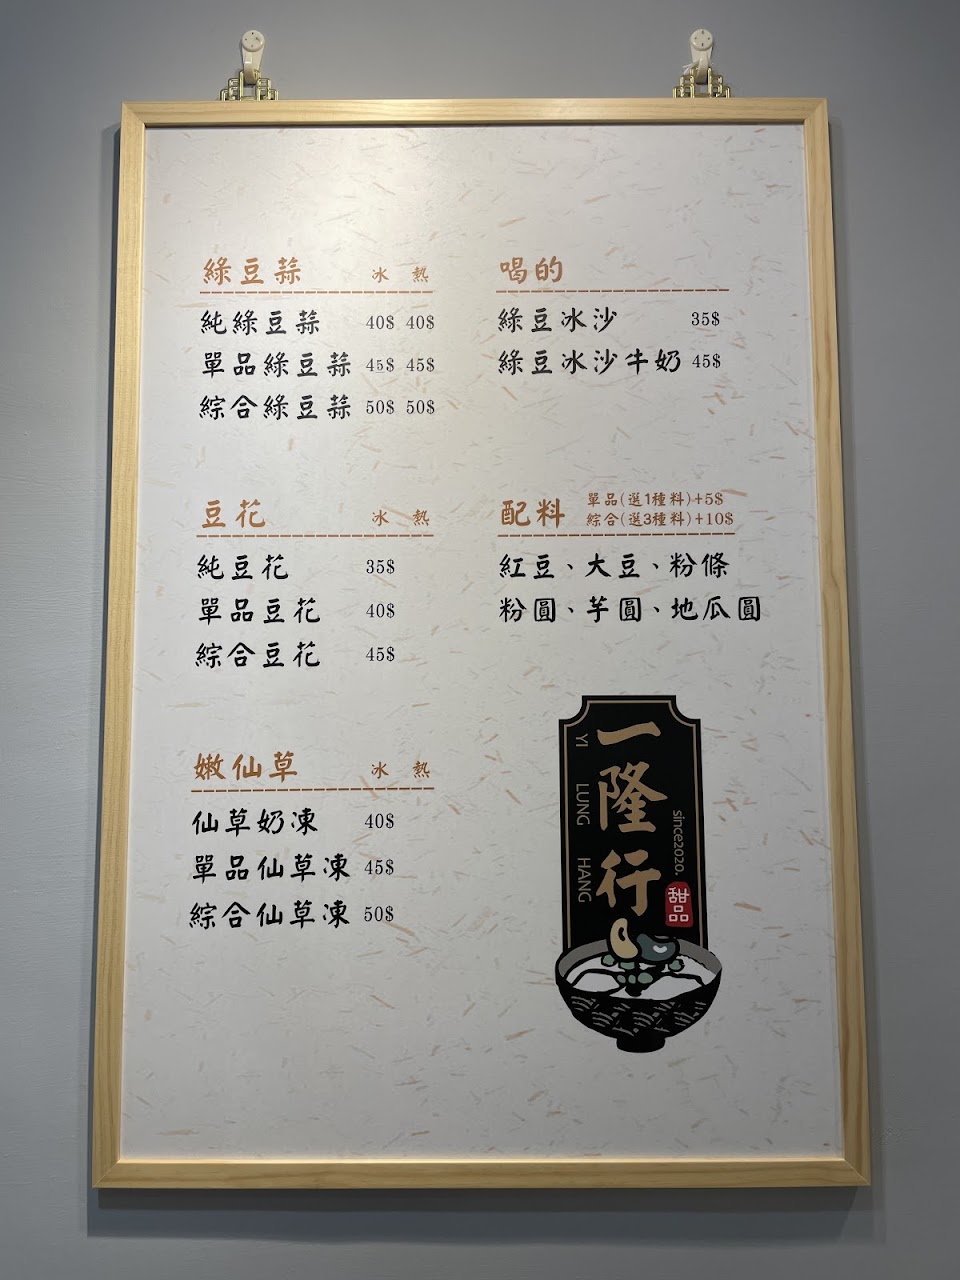 綠豆蒜 冰 熱
純綠豆蒜 40$ 40$
單品綠豆蒜 45$ 45$
綜合綠豆蒜 50$ 50$
喝的
綠豆冰沙 35$
綠豆冰沙牛奶 45$
豆花 冰 熱
純豆花 35$
單品豆花 40$
綜合豆花 45$
配料 單品(選1種料)+5$
綜合(選3種料)+10$
紅豆、大豆、粉條
粉圓、芋圓、地瓜圓
嫩仙草 冰 熱
仙草奶凍 40$
單品仙草凍 45$
綜合仙草凍 50$
一隆行
YI LUNG HANG
since2020.
甜品